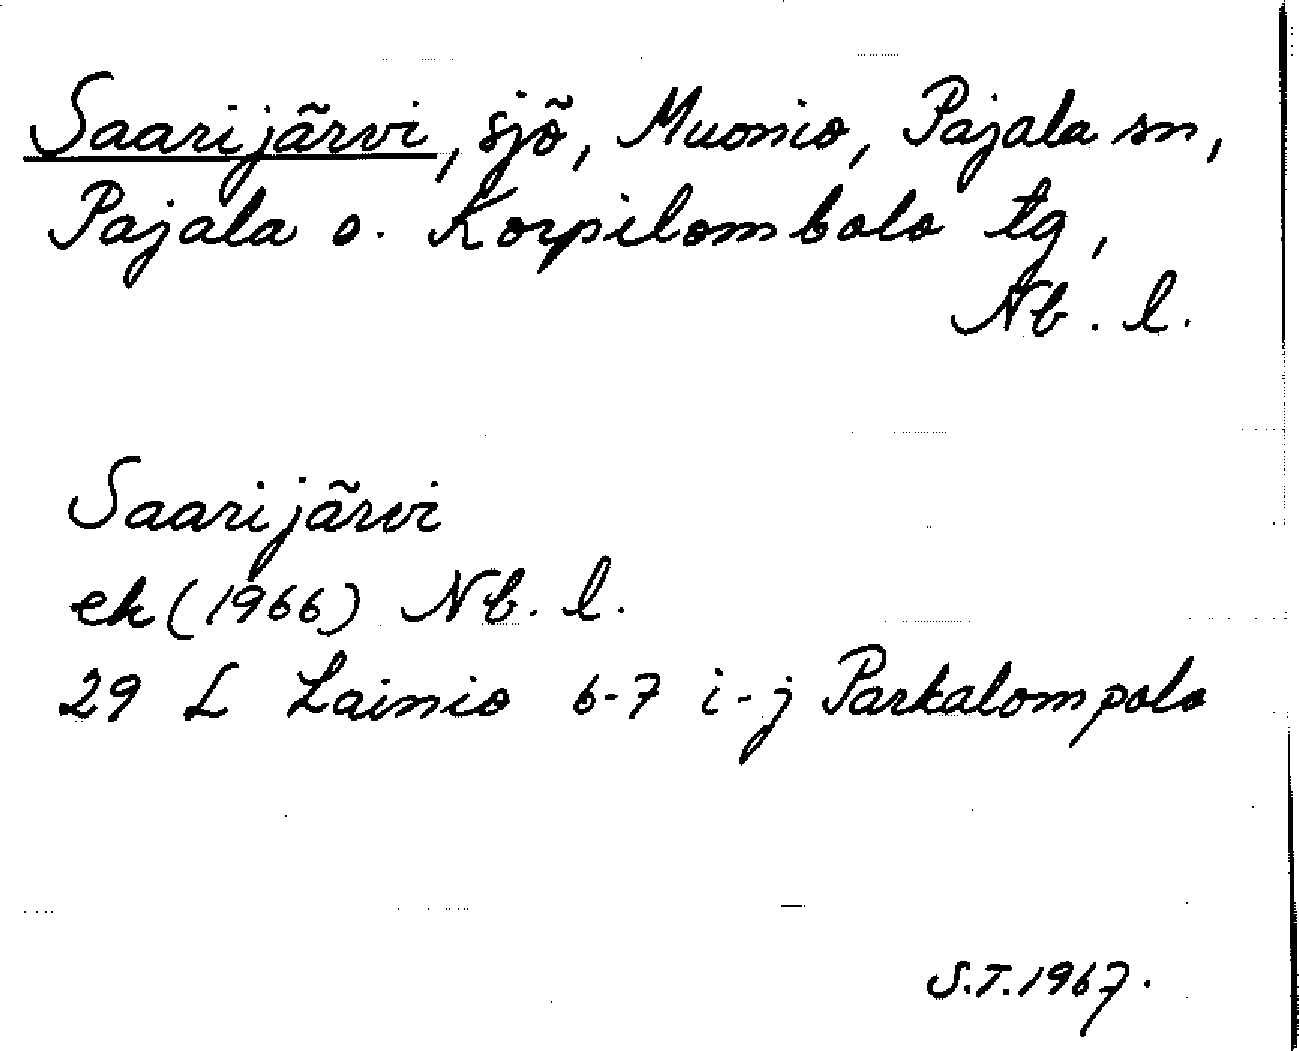 Saarijärvi, sjö, Muonio, Pajala sn,
Pajala o. Korpilombolo tg,
Nb. l.
Saarijärvi
ek (1966) Nb. l.
29 L Lainio 6-7 i-j Parkalompolo
S.T. 1967.